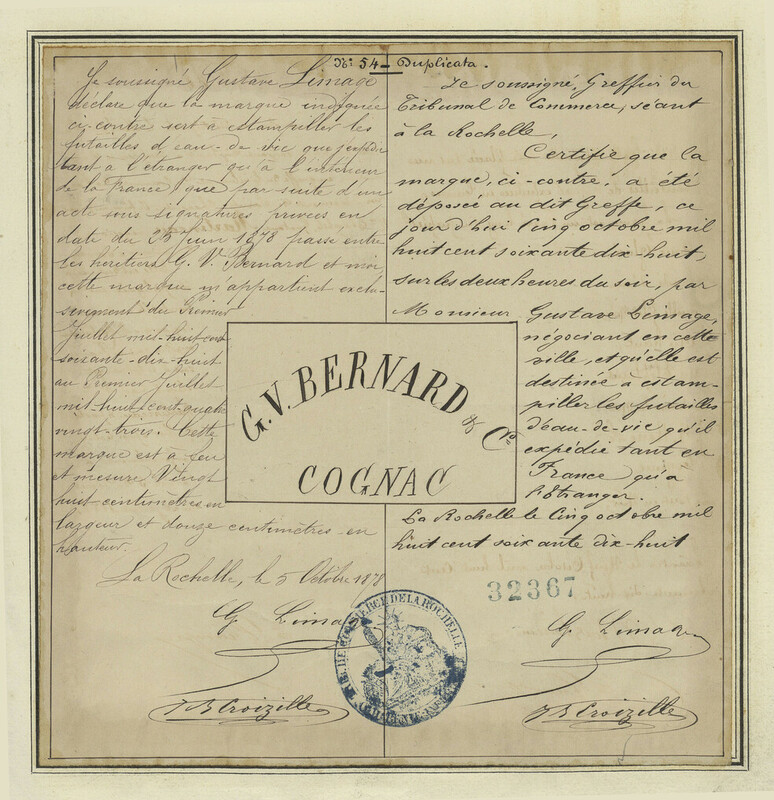 No: 54 — Duplicata.
Je soussigné Gustave Limage
déclare que la marque indiquée
ci-contre sert à estampiller les
futailles d'eau-de-vie que j'expédie
tant à l'étranger qu'à l'intérieur
de la France, que par suite d'un
acte sous signatures privées en
date du 25 Juin 1878 passé entre
les héritiers G. V. Bernard et moi,
cette marque m'appartient exclu-
sivement du Premier
Juillet mil-huit-cent
soixante-dix-huit
au Premier Juillet
mil-huit-cent-quatre
vingt-trois. Cette
marque est à feu
et mesure Vingt
huit centimètres en
largeur et douze centimètres en
hauteur.
La Rochelle, le 5 Octobre 1878
G. Limage
J B Croizille
Je soussigné, Greffier du
Tribunal de Commerce, séant
à la Rochelle,
Certifie que la
marque, ci-contre, a été
déposée au dit Greffe, ce
jour d'hui Cinq octobre mil
huit cent soixante dix-huit,
sur les deux heures du soir, par
Monsieur Gustave Limage,
négociant en cette
ville, et qu'elle est
destinée à estam-
piller les futailles
d'eau-de-vie qu'il
expédie tant en
France qu'à
l'Etranger.
La Rochelle le Cinq octobre mil
huit cent soixante dix-huit
32367
G. Limage
J B Croizille
G. V. BERNARD & Cie
COGNAC
DE COMMERCE DE LA ROCHELLE